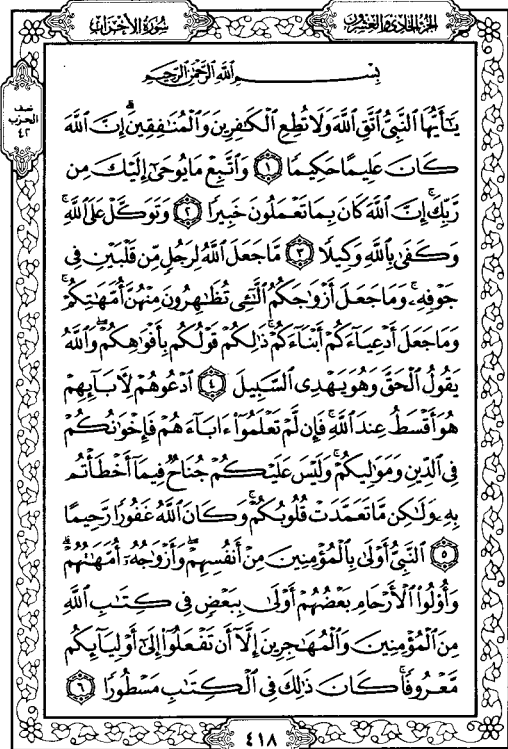 الجزء الحادي والعشرون
سُورَةُ الأَحْزَابِ
نصف
الحزب
٤٢
بِسْمِ ٱللَّهِ ٱلرَّحْمَٰنِ ٱلرَّحِيمِ
يَـٰٓأَيُّهَا ٱلنَّبِيُّ ٱتَّقِ ٱللَّهَ وَلَا تُطِعِ ٱلْكَـٰفِرِينَ وَٱلْمُنَـٰفِقِينَۗ إِنَّ ٱللَّهَ
كَانَ عَلِيمًا حَكِيمًا ١ وَٱتَّبِعْ مَا يُوحَىٰٓ إِلَيْكَ مِن
رَّبِّكَۚ إِنَّ ٱللَّهَ كَانَ بِمَا تَعْمَلُونَ خَبِيرًا ٢ وَتَوَكَّلْ عَلَى ٱللَّهِۚ
وَكَفَىٰ بِٱللَّهِ وَكِيلًا ٣ مَّا جَعَلَ ٱللَّهُ لِرَجُلٍ مِّن قَلْبَيْنِ فِى
جَوْفِهِۦۚ وَمَا جَعَلَ أَزْوَٰجَكُمُ ٱلَّـٰٓـِٔى تُظَـٰهِرُونَ مِنْهُنَّ أُمَّهَـٰتِكُمْۚ
وَمَا جَعَلَ أَدْعِيَآءَكُمْ أَبْنَآءَكُمْۚ ذَٰلِكُمْ قَوْلُكُم بِأَفْوَٰهِكُمْۖ وَٱللَّهُ
يَقُولُ ٱلْحَقَّ وَهُوَ يَهْدِى ٱلسَّبِيلَ ٤ ٱدْعُوهُمْ لِـَٔابَآئِهِمْ
هُوَ أَقْسَطُ عِندَ ٱللَّهِۚ فَإِن لَّمْ تَعْلَمُوٓا۟ ءَابَآءَهُمْ فَإِخْوَٰنُكُمْ
فِى ٱلدِّينِ وَمَوَٰلِيكُمْۚ وَلَيْسَ عَلَيْكُمْ جُنَاحٌ فِيمَآ أَخْطَأْتُم
بِهِۦ وَلَـٰكِن مَّا تَعَمَّدَتْ قُلُوبُكُمْۚ وَكَانَ ٱللَّهُ غَفُورًا رَّحِيمًا
٥ ٱلنَّبِىُّ أَوْلَىٰ بِٱلْمُؤْمِنِينَ مِنْ أَنفُسِهِمْۖ وَأَزْوَٰجُهُۥٓ أُمَّهَـٰتُهُمْۗ
وَأُو۟لُوا۟ ٱلْأَرْحَامِ بَعْضُهُمْ أَوْلَىٰ بِبَعْضٍ فِى كِتَـٰبِ ٱللَّهِ
مِنَ ٱلْمُؤْمِنِينَ وَٱلْمُهَـٰجِرِينَ إِلَّآ أَن تَفْعَلُوٓا۟ إِلَىٰٓ أَوْلِيَآئِكُم
مَّعْرُوفًاۚ كَانَ ذَٰلِكَ فِى ٱلْكِتَـٰبِ مَسْطُورًا ٦
٤١٨